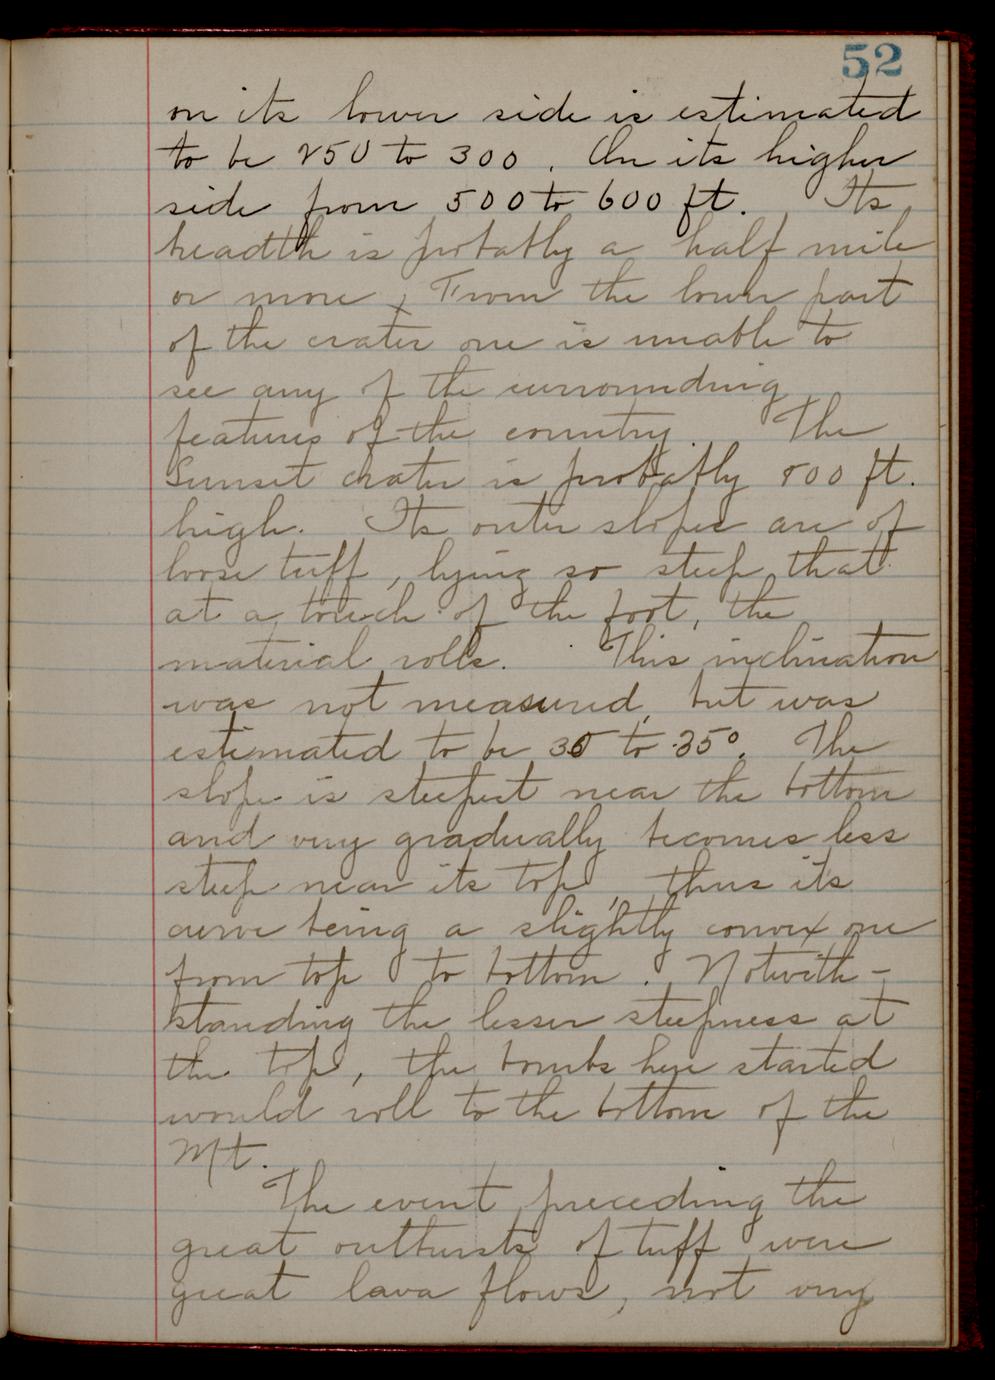 52
on its lower side is estimated
to be 250 to 300. On its higher
side from 500 to 600 ft. Its
breadth is probably a half mile
or more, From the lower part
of the crater one is unable to
see any of the surrounding
features of the country. The
Sunset crater is probably 800 ft.
high. Its outer slopes are of
loose tuff, lying so steep that
at a touch of the foot, the
material rolls. This inclination
was not measured, but was
estimated to be 30 to 35°. The
slope is steepest near the bottom
and very gradually becomes less
steep near its top, thus its
curve being a slightly convex one
from top to bottom. Notwith-
standing the lesser steepness at
the top, the bombs here started
would roll to the bottom of the
Mt.
The event preceding the
great outbursts of tuff were
great lava flows, not very